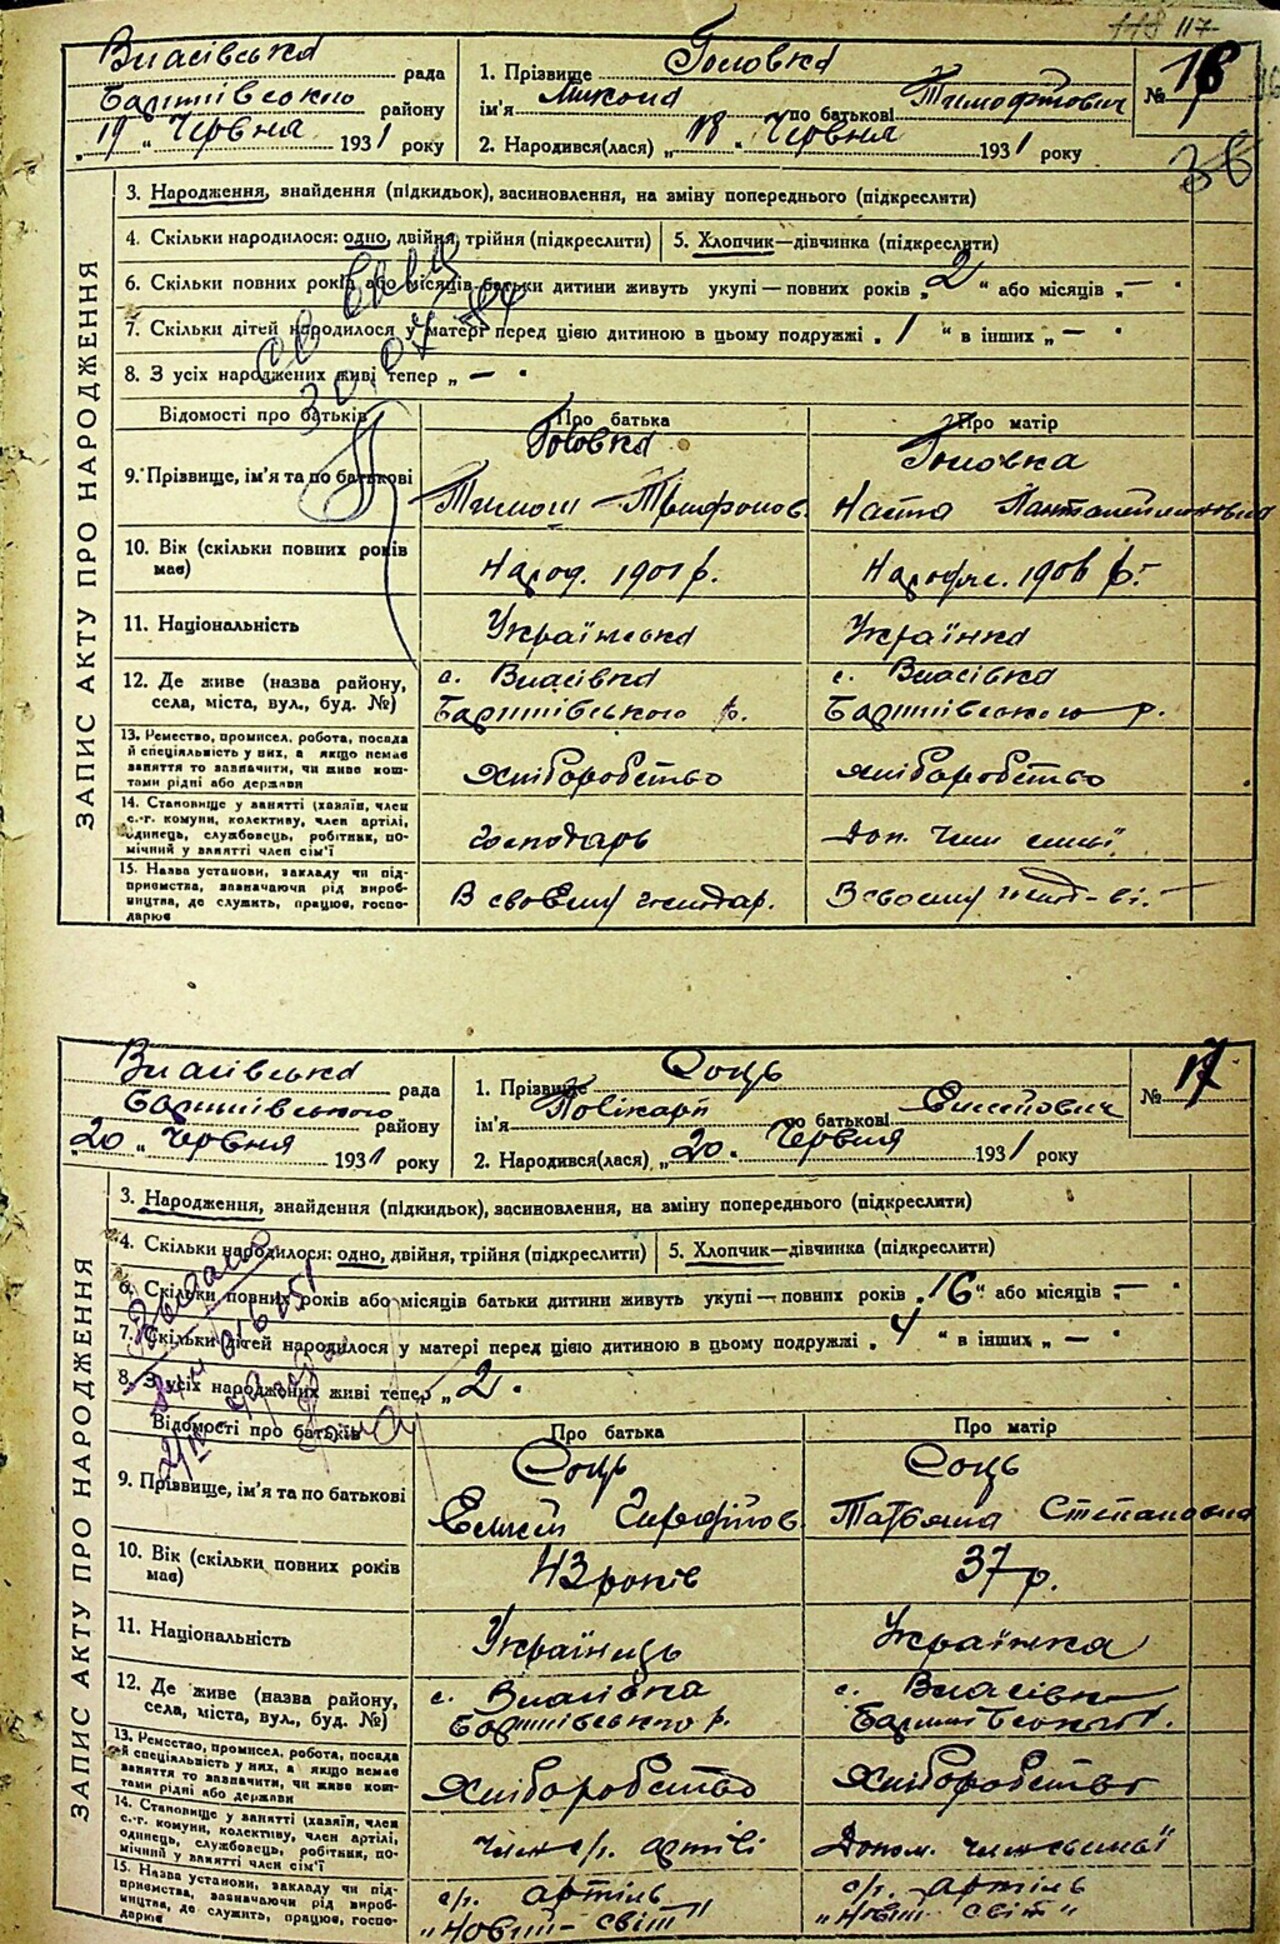 117
Власівська рада
Баришівського району
„19“ Червня 1931 року
1. Прізвище Головка
ім'я Микола по батькові Тимофтович
2. Народився(лася) „18“ Червня 1931 року
№ 16
36
ЗАПИС АКТУ ПРО НАРОДЖЕННЯ
3. Народження, знайдення (підкидьок), засиновлення, на зміну попереднього (підкреслити)
4. Скільки народилося: одно, двійня, трійня (підкреслити)
5. Хлопчик—дівчинка (підкреслити)
6. Скільки повних років або місяців батьки дитини живуть укупі — повних років „2“ або місяців „—“
7. Скільки дітей народилося у матері перед цією дитиною в цьому подружжі „1“ в інших „—“
8. З усіх народжених живі тепер „—“
Відомості про батьків
Про батька
Про матір
9. Прізвище, ім'я та по батькові
Головка
Тимош Трифонов.
Головка
Настя Панталеймоновна
10. Вік (скільки повних років має)
Народ. 1901 р.
1906 р.
11. Національність
Українська
Українка
12. Де живе (назва району, села, міста, вул., буд. №)
с. Власівка
Баришівського р.
с. Власівка
Баришівського р.
13. Ремество, промисел, робота, посада
й спеціяльність у них, а якщо немає
заняття то зазначити, чи живе кош-
тами рідні або держави
Хліборобство
Хліборобство
14. Становище у занятті (хазяїн, член
с.-г. комуни, колективу, член артілі,
одинець, службовець, робітник, по-
мічний у занятті член сім'ї
Господарь
Доп. член сим'ї
15. Назва установи, закладу чи під-
приємства, зазначаючи рід вироб-
ництва, де служить, працює, госпо-
дарює
В своєму господар.
В своєму
Власівська рада
Баришівського району
„20“ Червня 1931 року
1. Прізвище Соць
ім'я Полікарп по батькові
2. Народився(лася) „20“ Червня 1931 року
№ 17
ЗАПИС АКТУ ПРО НАРОДЖЕННЯ
3. Народження, знайдення (підкидьок), засиновлення, на зміну попереднього (підкреслити)
4. Скільки народилося: одно, двійня, трійня (підкреслити)
5. Хлопчик—дівчинка (підкреслити)
6. Скільки повних років або місяців батьки дитини живуть укупі — повних років „16“ або місяців „—“
7. Скільки дітей народилося у матері перед цією дитиною в цьому подружжі „4“ в інших „—“
8. З усіх народжених живі тепер „2“
Відомості про батьків
Про батька
Про матір
9. Прізвище, ім'я та по батькові
Соць
Соць
Татьяна Степановна
10. Вік (скільки повних років має)
43 років
37 р.
11. Національність
Українець
Українка
12. Де живе (назва району, села, міста, вул., буд. №)
с. Власівка
Баришівського р.
с. Власівка
13. Ремество, промисел, робота, посада
й спеціяльність у них, а якщо немає
заняття то зазначити, чи живе кош-
тами рідні або держави
Хліборобство
Хліборобство
14. Становище у занятті (хазяїн, член
с.-г. комуни, колективу, член артілі,
одинець, службовець, робітник, по-
мічний у занятті член сім'ї
член с/г. артілі
Допом. член сьимьї
15. Назва установи, закладу чи під-
приємства, зазначаючи рід вироб-
ництва, де служить, працює, госпо-
дарює
с/г. артіль
„Новий світ“
с/г. артіль
„Новий світ“